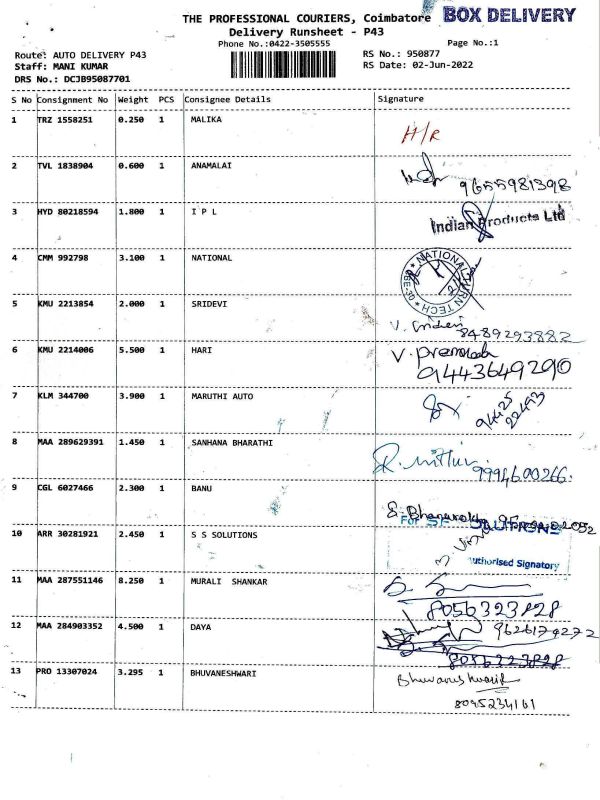 THE PROFESSIONAL COURIERS, Coimbatore BOX DELIVERY
Delivery Runsheet - P43
Phone No.:0422-3505555 Page No.:1
Route: AUTO DELIVERY P43 RS No.: 950877
Staff: MANI KUMAR RS Date: 02-Jun-2022
DRS No.: DCJB95087701
S No Consignment No Weight PCS Consignee Details Signature
1 TRZ 1558251 0.250 1 MALIKA H/R
2 TVL 1838904 0.600 1 ANAMALAI 9655981398
3 HYD 80218594 1.800 1 I P L Indian Products Ltd
4 CMM 992798 3.100 1 NATIONAL NATIONAL TECH
5 KMU 2213854 2.000 1 SRIDEVI 8489293882
6 KMU 2214006 5.500 1 HARI V. 
9443649290
7 KLM 344700 3.900 1 MARUTHI AUTO 94425
22493
8 MAA 289629391 1.450 1 SANHANA BHARATHI 9994600266.
9 CGL 6027466 2.300 1 BANU
10 ARR 30281921 2.450 1 S S SOLUTIONS For SOLUTIONS
Authorised Signatory
11 MAA 287551146 8.250 1 MURALI SHANKAR
8056323828
12 MAA 284903352 4.500 1 DAYA 9626179272
8056323828
13 PRO 13307024 3.295 1 BHUVANESHWARI
8095234161